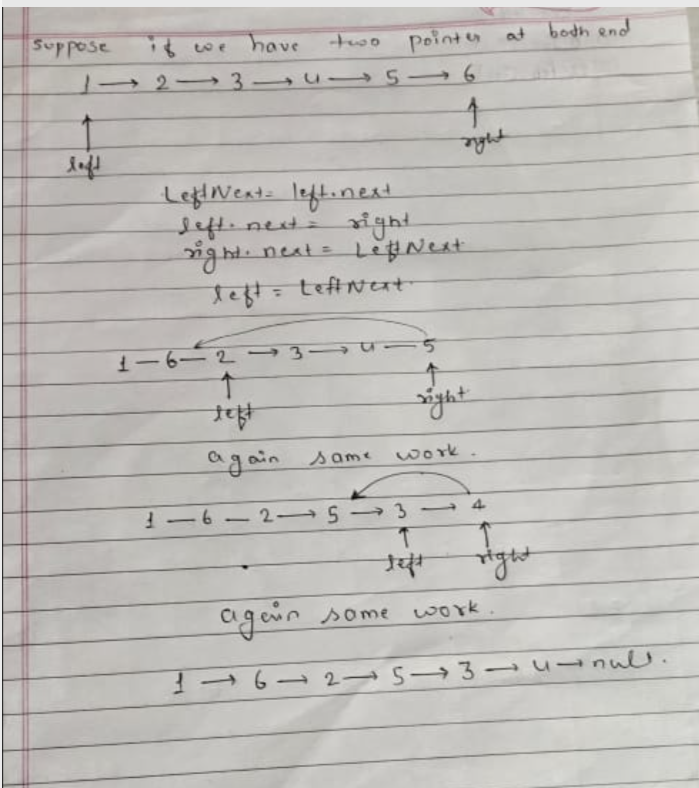 suppose if we have two pointers at both end
1 → 2 → 3 → 4 → 5 → 6
left right
LeftNext = left.next
left.next = right
right.next = LeftNext
left = LeftNext.
1 — 6 — 2 → 3 → 4 — 5
left right
again same work.
1 — 6 — 2 → 5 → 3 → 4
left right
again same work.
1 → 6 → 2 → 5 → 3 → 4 → null.